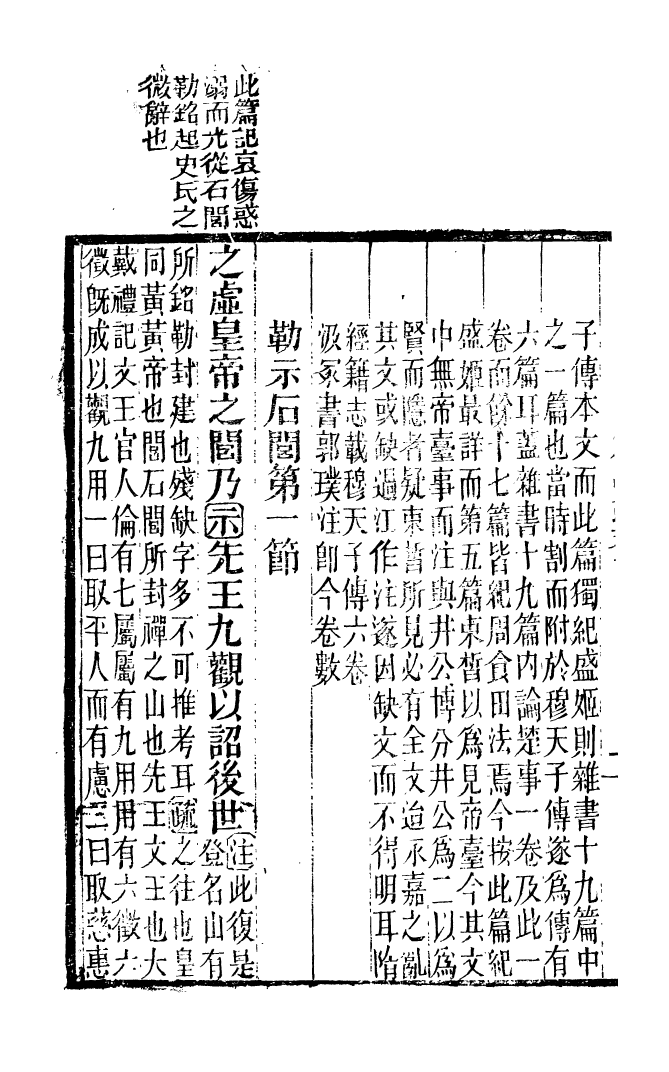 此篇記哀傷惑
溺而尤從石閭
勒銘起史氏之
微辭也
子傳本文而此篇獨紀盛姬則雜書十九篇中
之一篇也當時割而附於穆天子傳遂為傳有
六篇耳蓋雜書十九篇內論楚事一卷及此一
卷而餘十七篇皆紀周食田法焉今按此篇紀
盛姬最詳而第五篇束晳以為見帝臺今其文
中無帝臺事而注與井公博分井公為二以為
賢而隱者疑束晳所見必有全文迨永嘉之亂
其文或缺過江作注遂因缺文而不得明耳隋
經籍志載穆天子傳六卷
汲冢書郭璞注卽今卷數
勒示石閭第一節
之虛皇帝之閭乃示先王九觀以詔後世注此復是
登名山有
所銘勒封建也殘缺字多不可推考耳疏之往也皇
同黃黃帝也閭石閭所封禪之山也先王文王也大
戴禮記文王官人倫有七屬屬有九用用有六徵六
徵旣成以觀九用一曰取平人而有慮二曰取慈惠